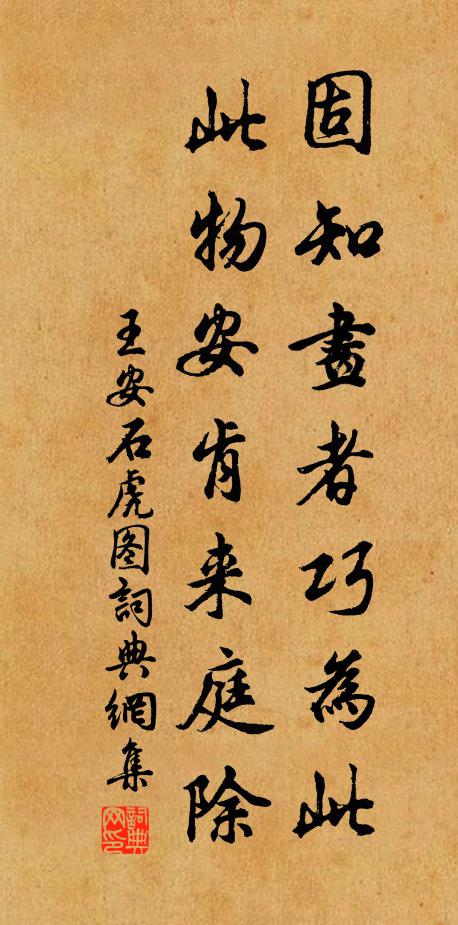 固知畫者巧為此
此物安肯来庭除
王安石虎图詞典網集
詞典网印